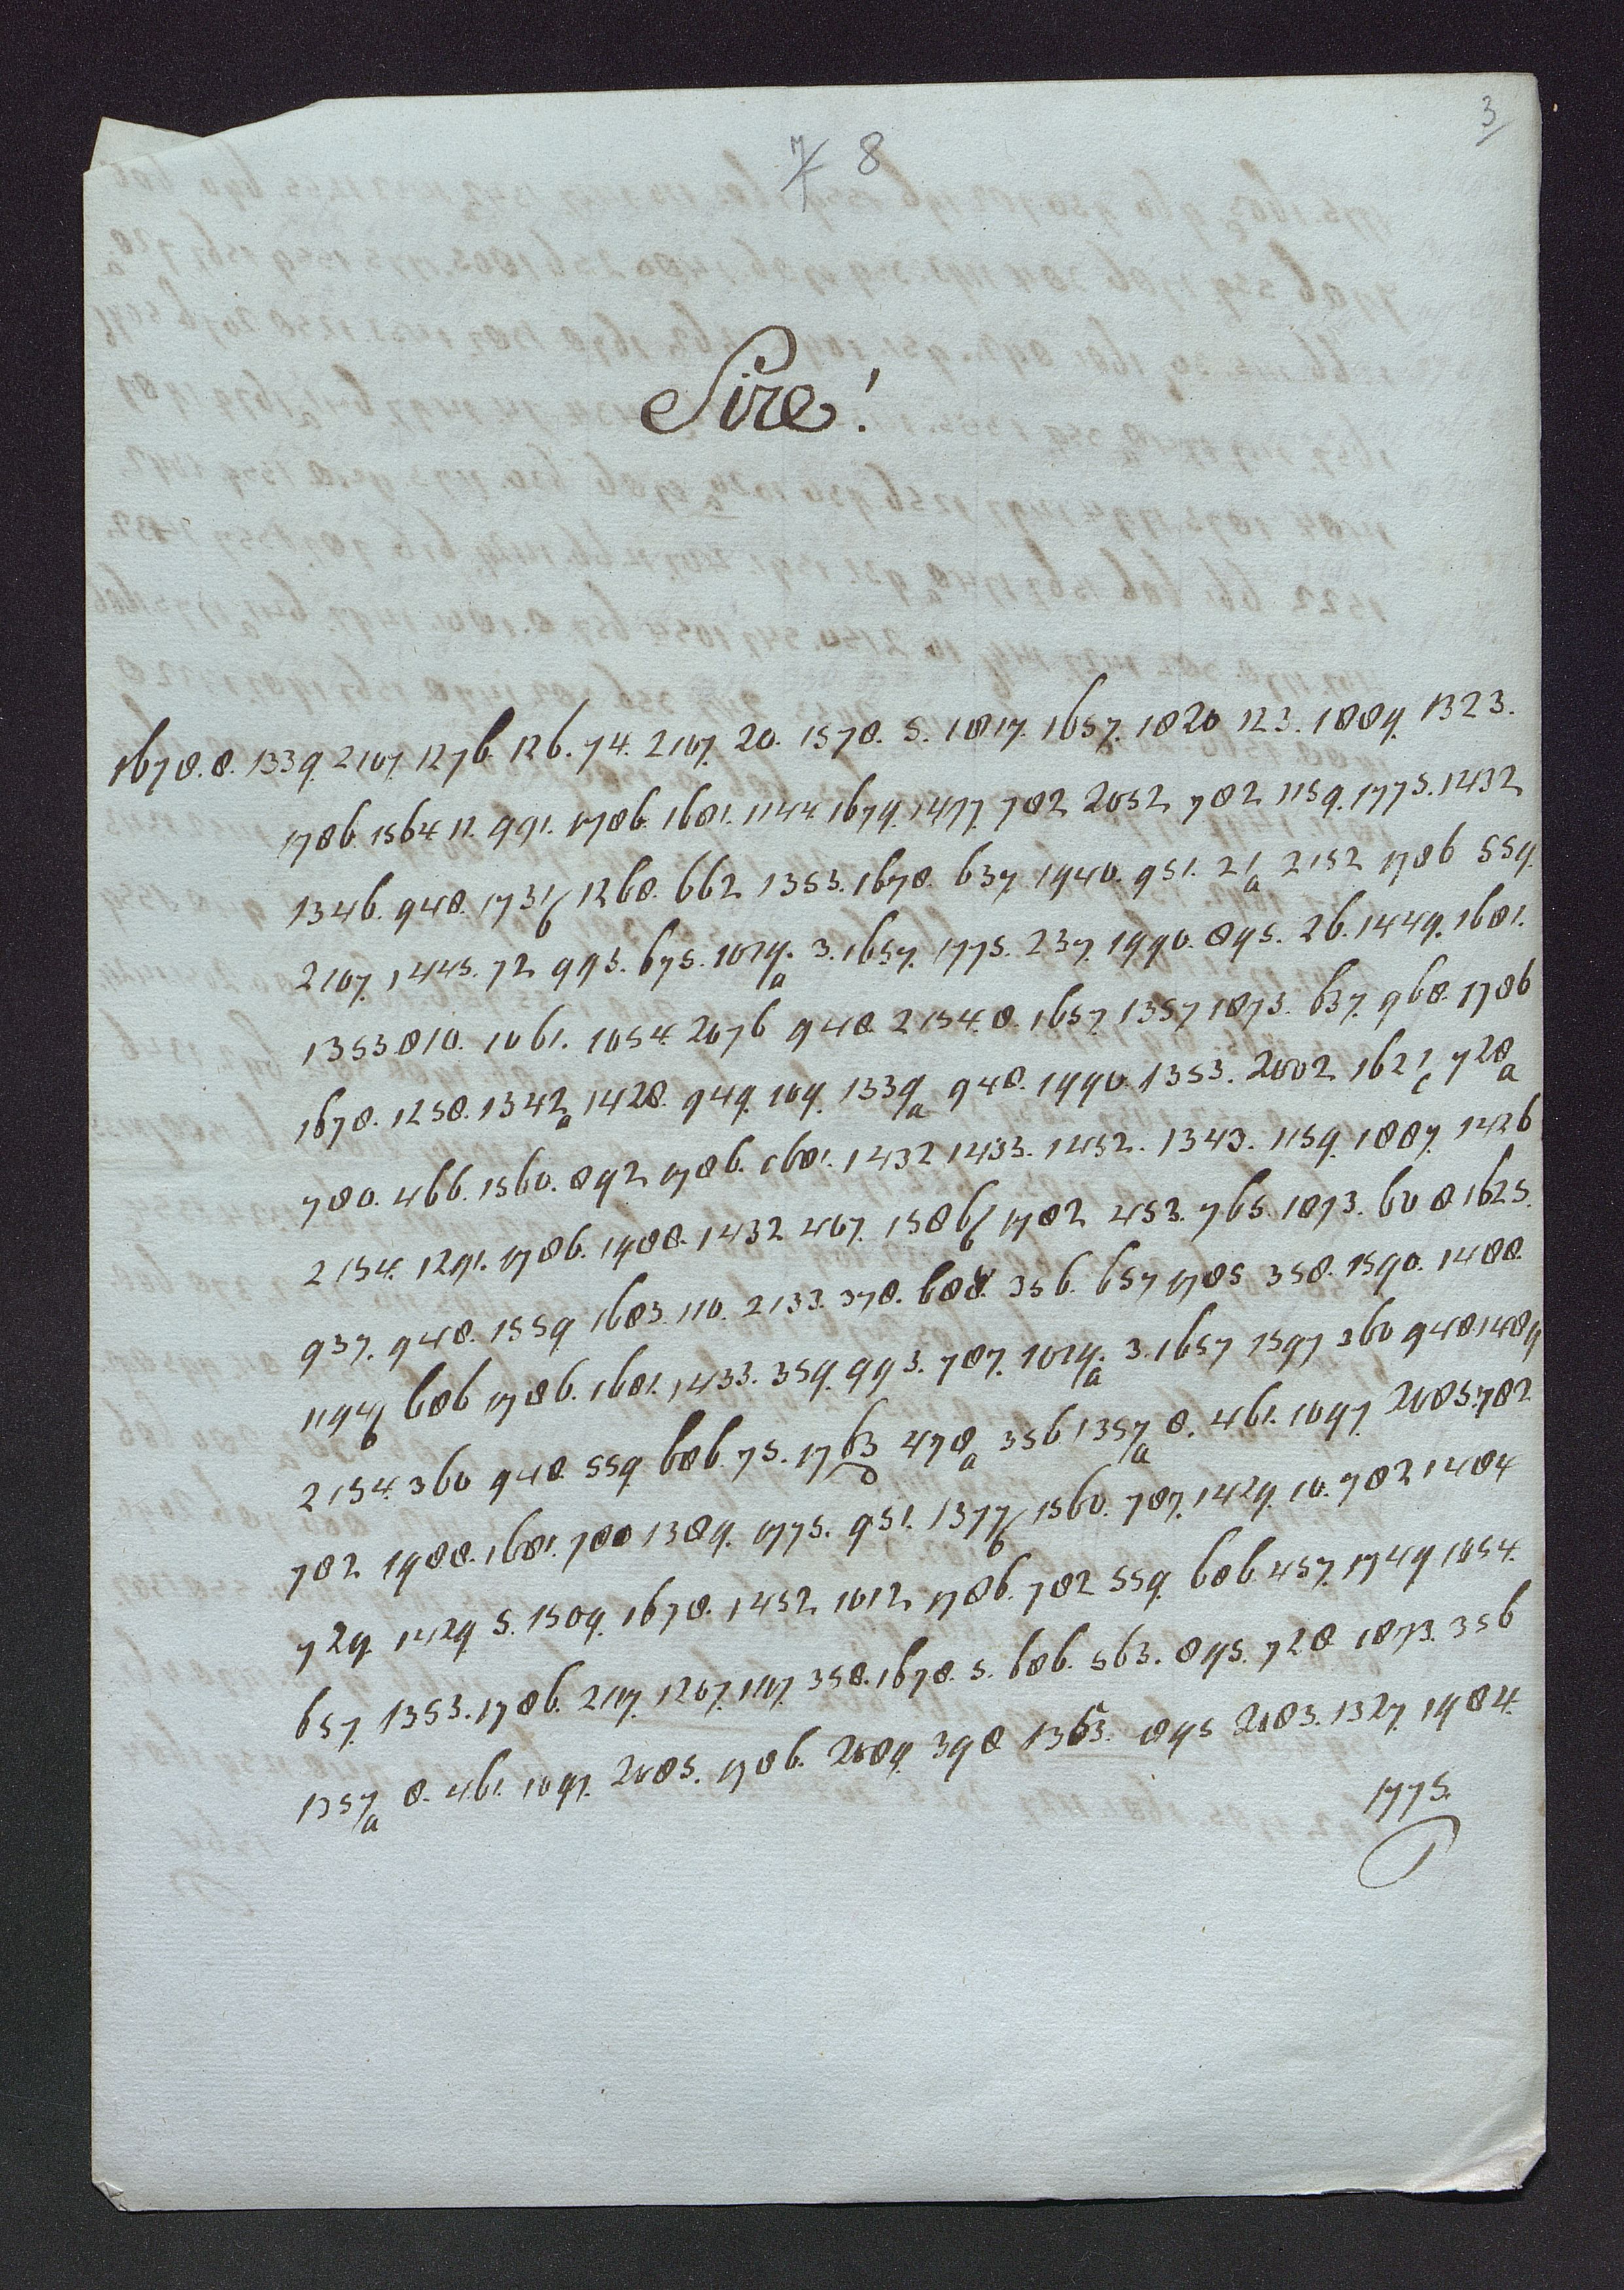 3
7 8
Sire!
1678. 8. 1339. 2107. 1276. 126. 74. 2107. 20. 1578. 5. 1817. 1657. 1820 123. 1889. 1323.
1786. 1564 11. 991. 1786. 1681. 1144. 1679. 1477. 782 2052 782 1159. 1775. 1432
1346. 948. 1731 b 1268. 662 1353. 1678. 637 1940. 951. 21 a 2152 1786 559.
2107. 1445. 72 995. 675. 1079. a 3. 1657. 1775. 237. 1990. 895. 26. 1449. 1681.
1353. 810. 1061. 1054. 2076 948. 2154. 8. 1657. 1357 1873. 637. 968. 1786
1678. 1258. 1342 a 1428. 949. 109. 1339 a 948. 1990. 1353. 2002 1621 c 728 a
780. 466. 1560. 892 1786. 1681. 1432 1433. 1452. 1343. 1159. 1887. 1426
2154. 1291. 1786. 1988. 1432 467. 1586 b 1782 453. 765. 1873. 60 8 1625.
937. 948. 1559 1683. 110. 2133. 378. 688. 356. 657 1785 358. 1590. 1488.
1194 b 686 1786. 1681. 1433. 359. 993. 787. 1079. a 3. 1657 1597 360 948. 1489
2154. 360 948. 559 686. 75. 1763 d 478 a 356 1357 a 8. 461. 1097. 2085. 782
782 1988. 1681. 780 1389. 1775. 951. 1377 b 1560. 787. 1429. 10. 782 1484
729. 1429 5. 1509. 1678. 1452 1012 1786. 782 559. 686. 457. 1749 1054.
657. 1353. 1786. 2107. 1207. 1107. 358. 1678. 5. 686. 563. 895. 728 1873. 356
1357 a 8. 461. 1097. 2085. 1786. 2089. 398 1353. 895 2083. 1327. 1984.
1775.